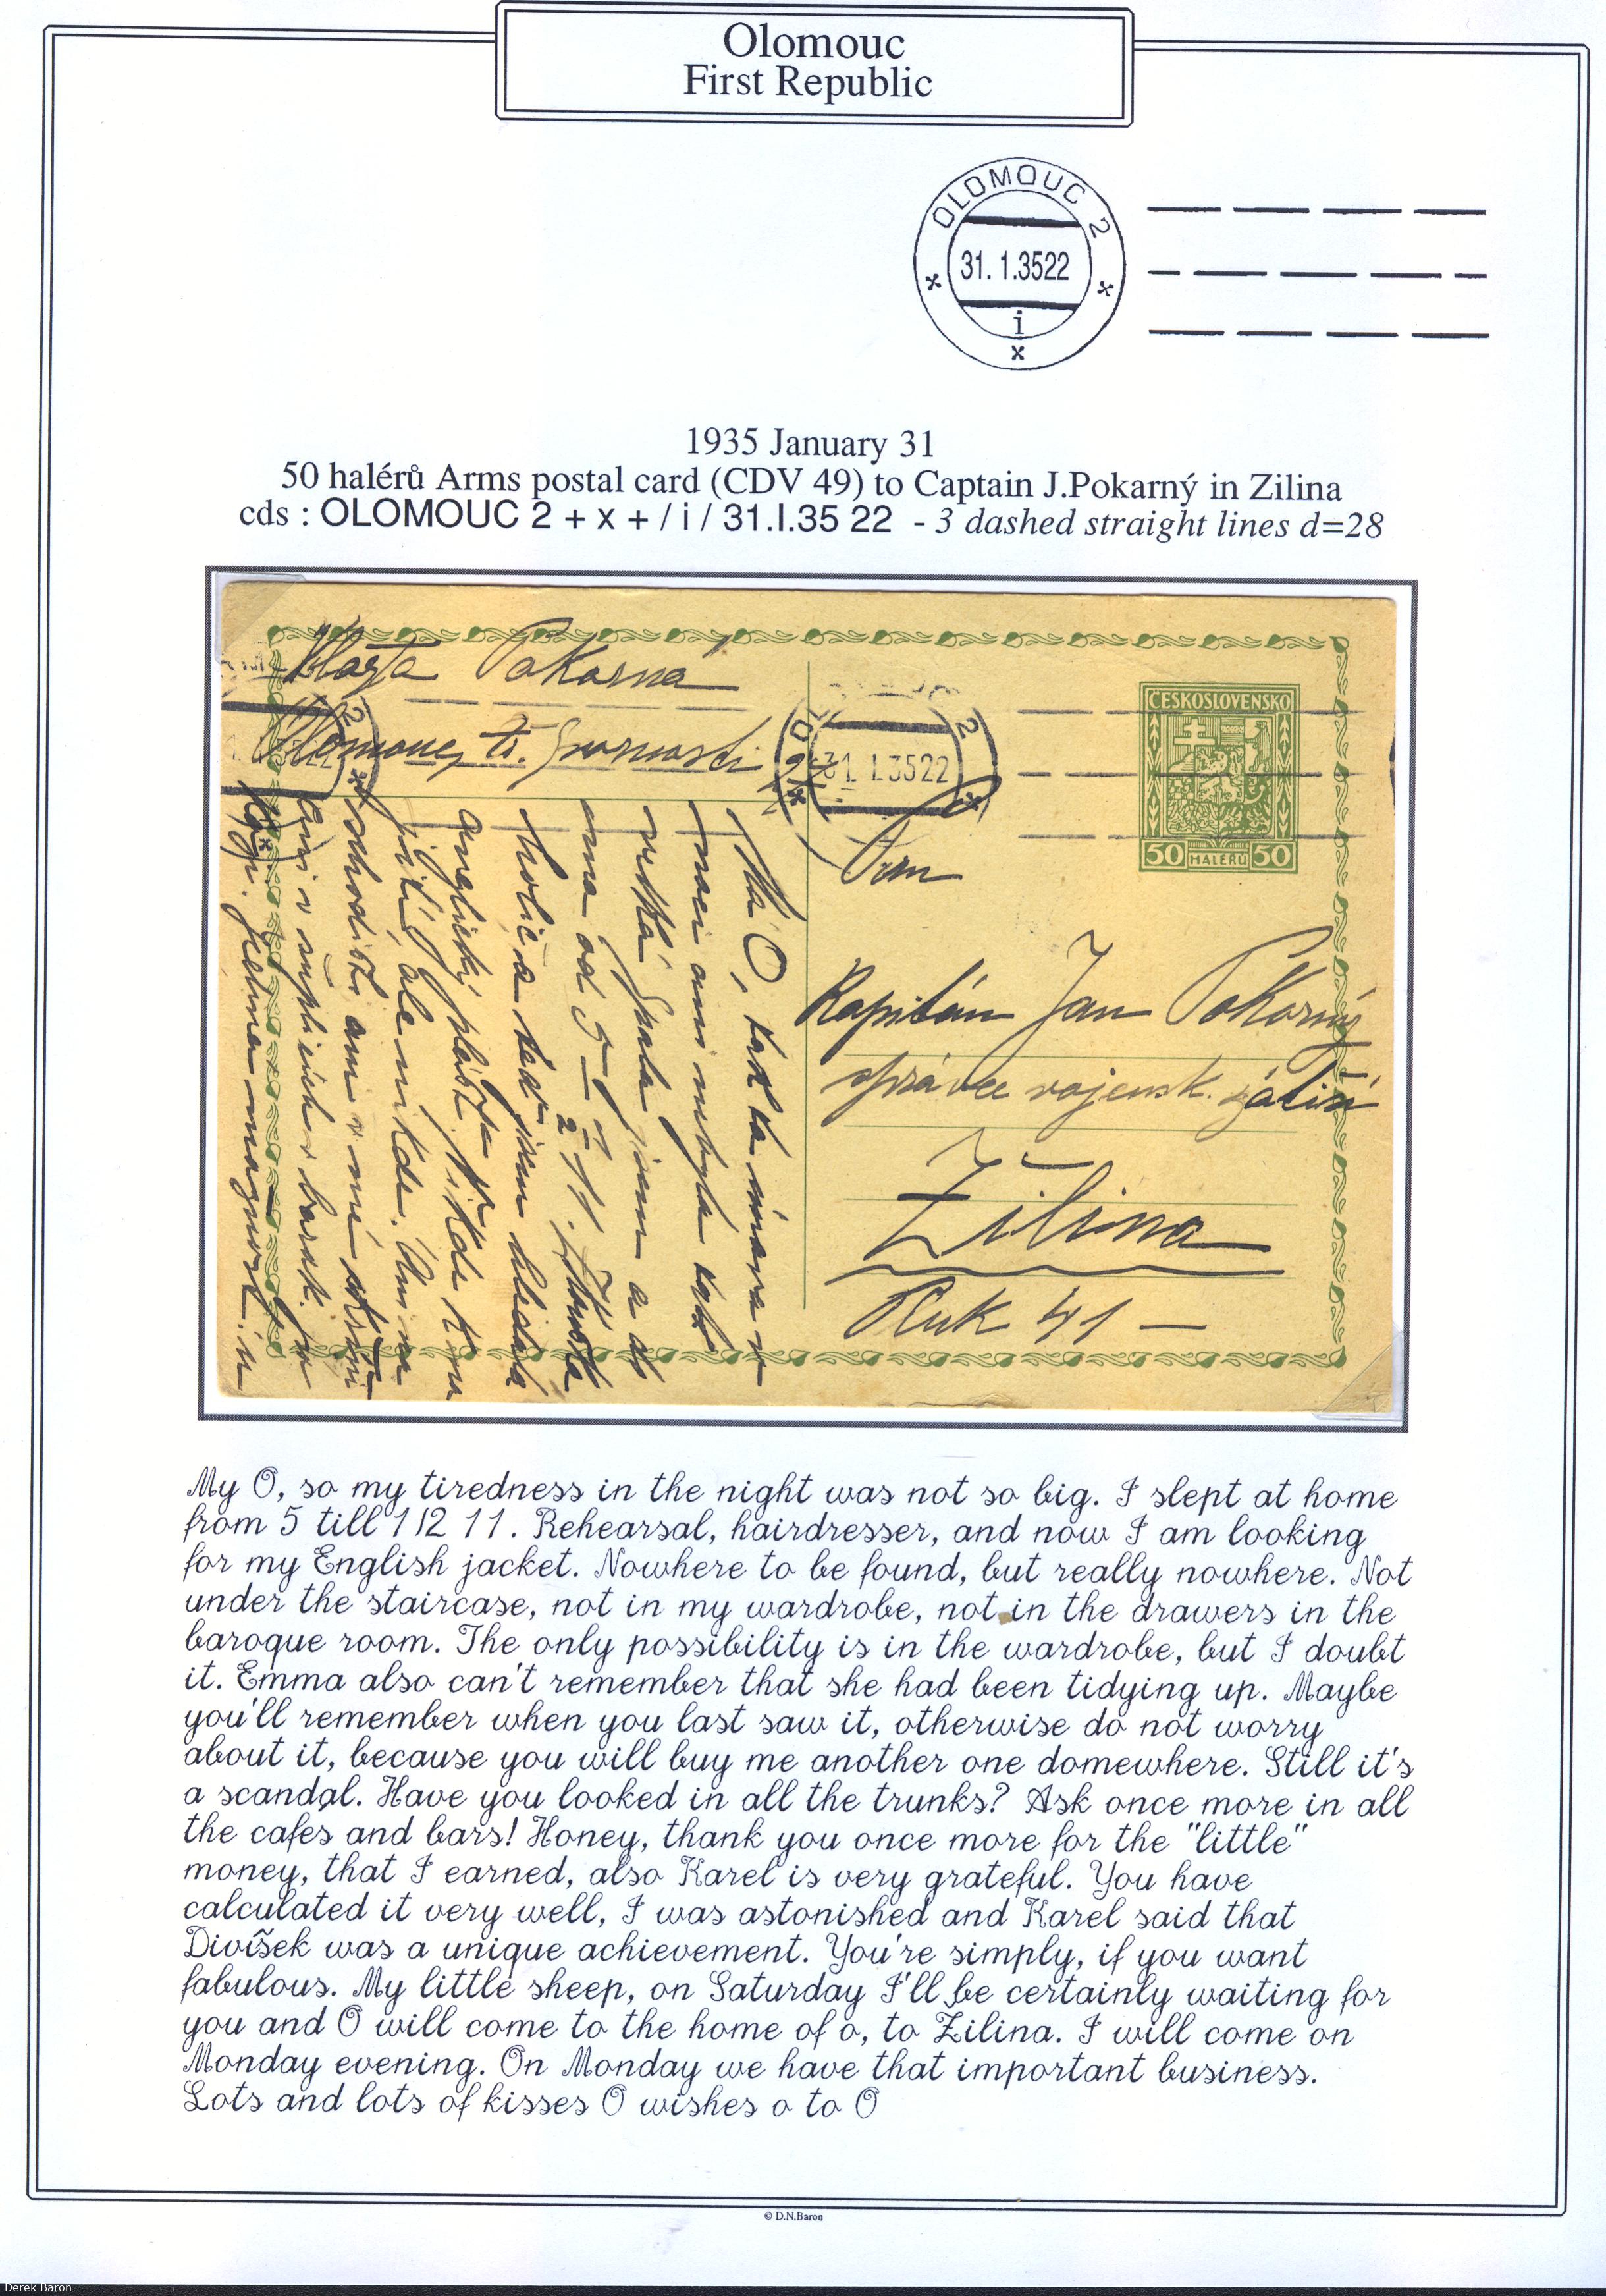 Olomouc
First Republic
OLOMOUC 2
31. 1.3522
i
x
1935 January 31
50 halérů Arms postal card (CDV 49) to Captain J.Pokarný in Zilina
cds : OLOMOUC 2 + x + / i / 31.I.35 22 - 3 dashed straight lines d=28
Pokorná
Olomouc, tř. Svornosti
2
31. 1.3522
ČESKOSLOVENSKO
50 HALÉŘŮ 50
Pan
Kapitán Jan Pokorný
správce vojensk. zátiší
Žilina
Ruk 41 —
Má O, tak ta únava v
noci ani nebyla tak
velká. Spala jsem
od 5 – ½ 11. Zkouška
holič a teď jsem hledala
anglický plášť. Nikde
ale nikde. Ani
schodišti ani v mé skříni
ani v šuplících v barok.
My O, so my tiredness in the night was not so big. I slept at home
from 5 till 1/2 11. Rehearsal, hairdresser, and now I am looking
for my English jacket. Nowhere to be found, but really nowhere. Not
under the staircase, not in my wardrobe, not in the drawers in the
baroque room. The only possibility is in the wardrobe, but I doubt
it. Emma also can't remember that she had been tidying up. Maybe
you'll remember when you last saw it, otherwise do not worry
about it, because you will buy me another one domewhere. Still it's
a scandal. Have you looked in all the trunks? Ask once more in all
the cafés and bars! Honey, thank you once more for the "little"
money, that I earned, also Karel is very grateful. You have
calculated it very well, I was astonished and Karel said that
Divíšek was a unique achievement. You're simply, if you want
fabulous. My little sheep, on Saturday I'll be certainly waiting for
you and O will come to the home of o, to Zilina. I will come on
Monday evening. On Monday we have that important business.
Lots and lots of kisses O wishes o to O
© D.N.Baron
Derek Baron